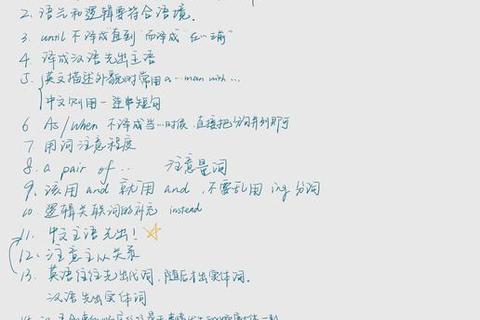 2. 语言和逻辑要符合语境.
3. until 不译成直到 而译成"在…前"
4 译成汉语先出主语
5. 英文描述外貌时常用 a… man with …
中文则用一连串短句
6 As/When 不译成当…时候,直接把分句并列即可
7 用词注意程度
8. a pair of .. 注意量词
9. 该用 and 就用 and, 不要乱用 ing 分词
10 逻辑关联词的补充 instead
11. 中文主语先出!
12. 注意主从关系
13. 英语往往先出代词, 随后才出实体词.
汉语先出实体词